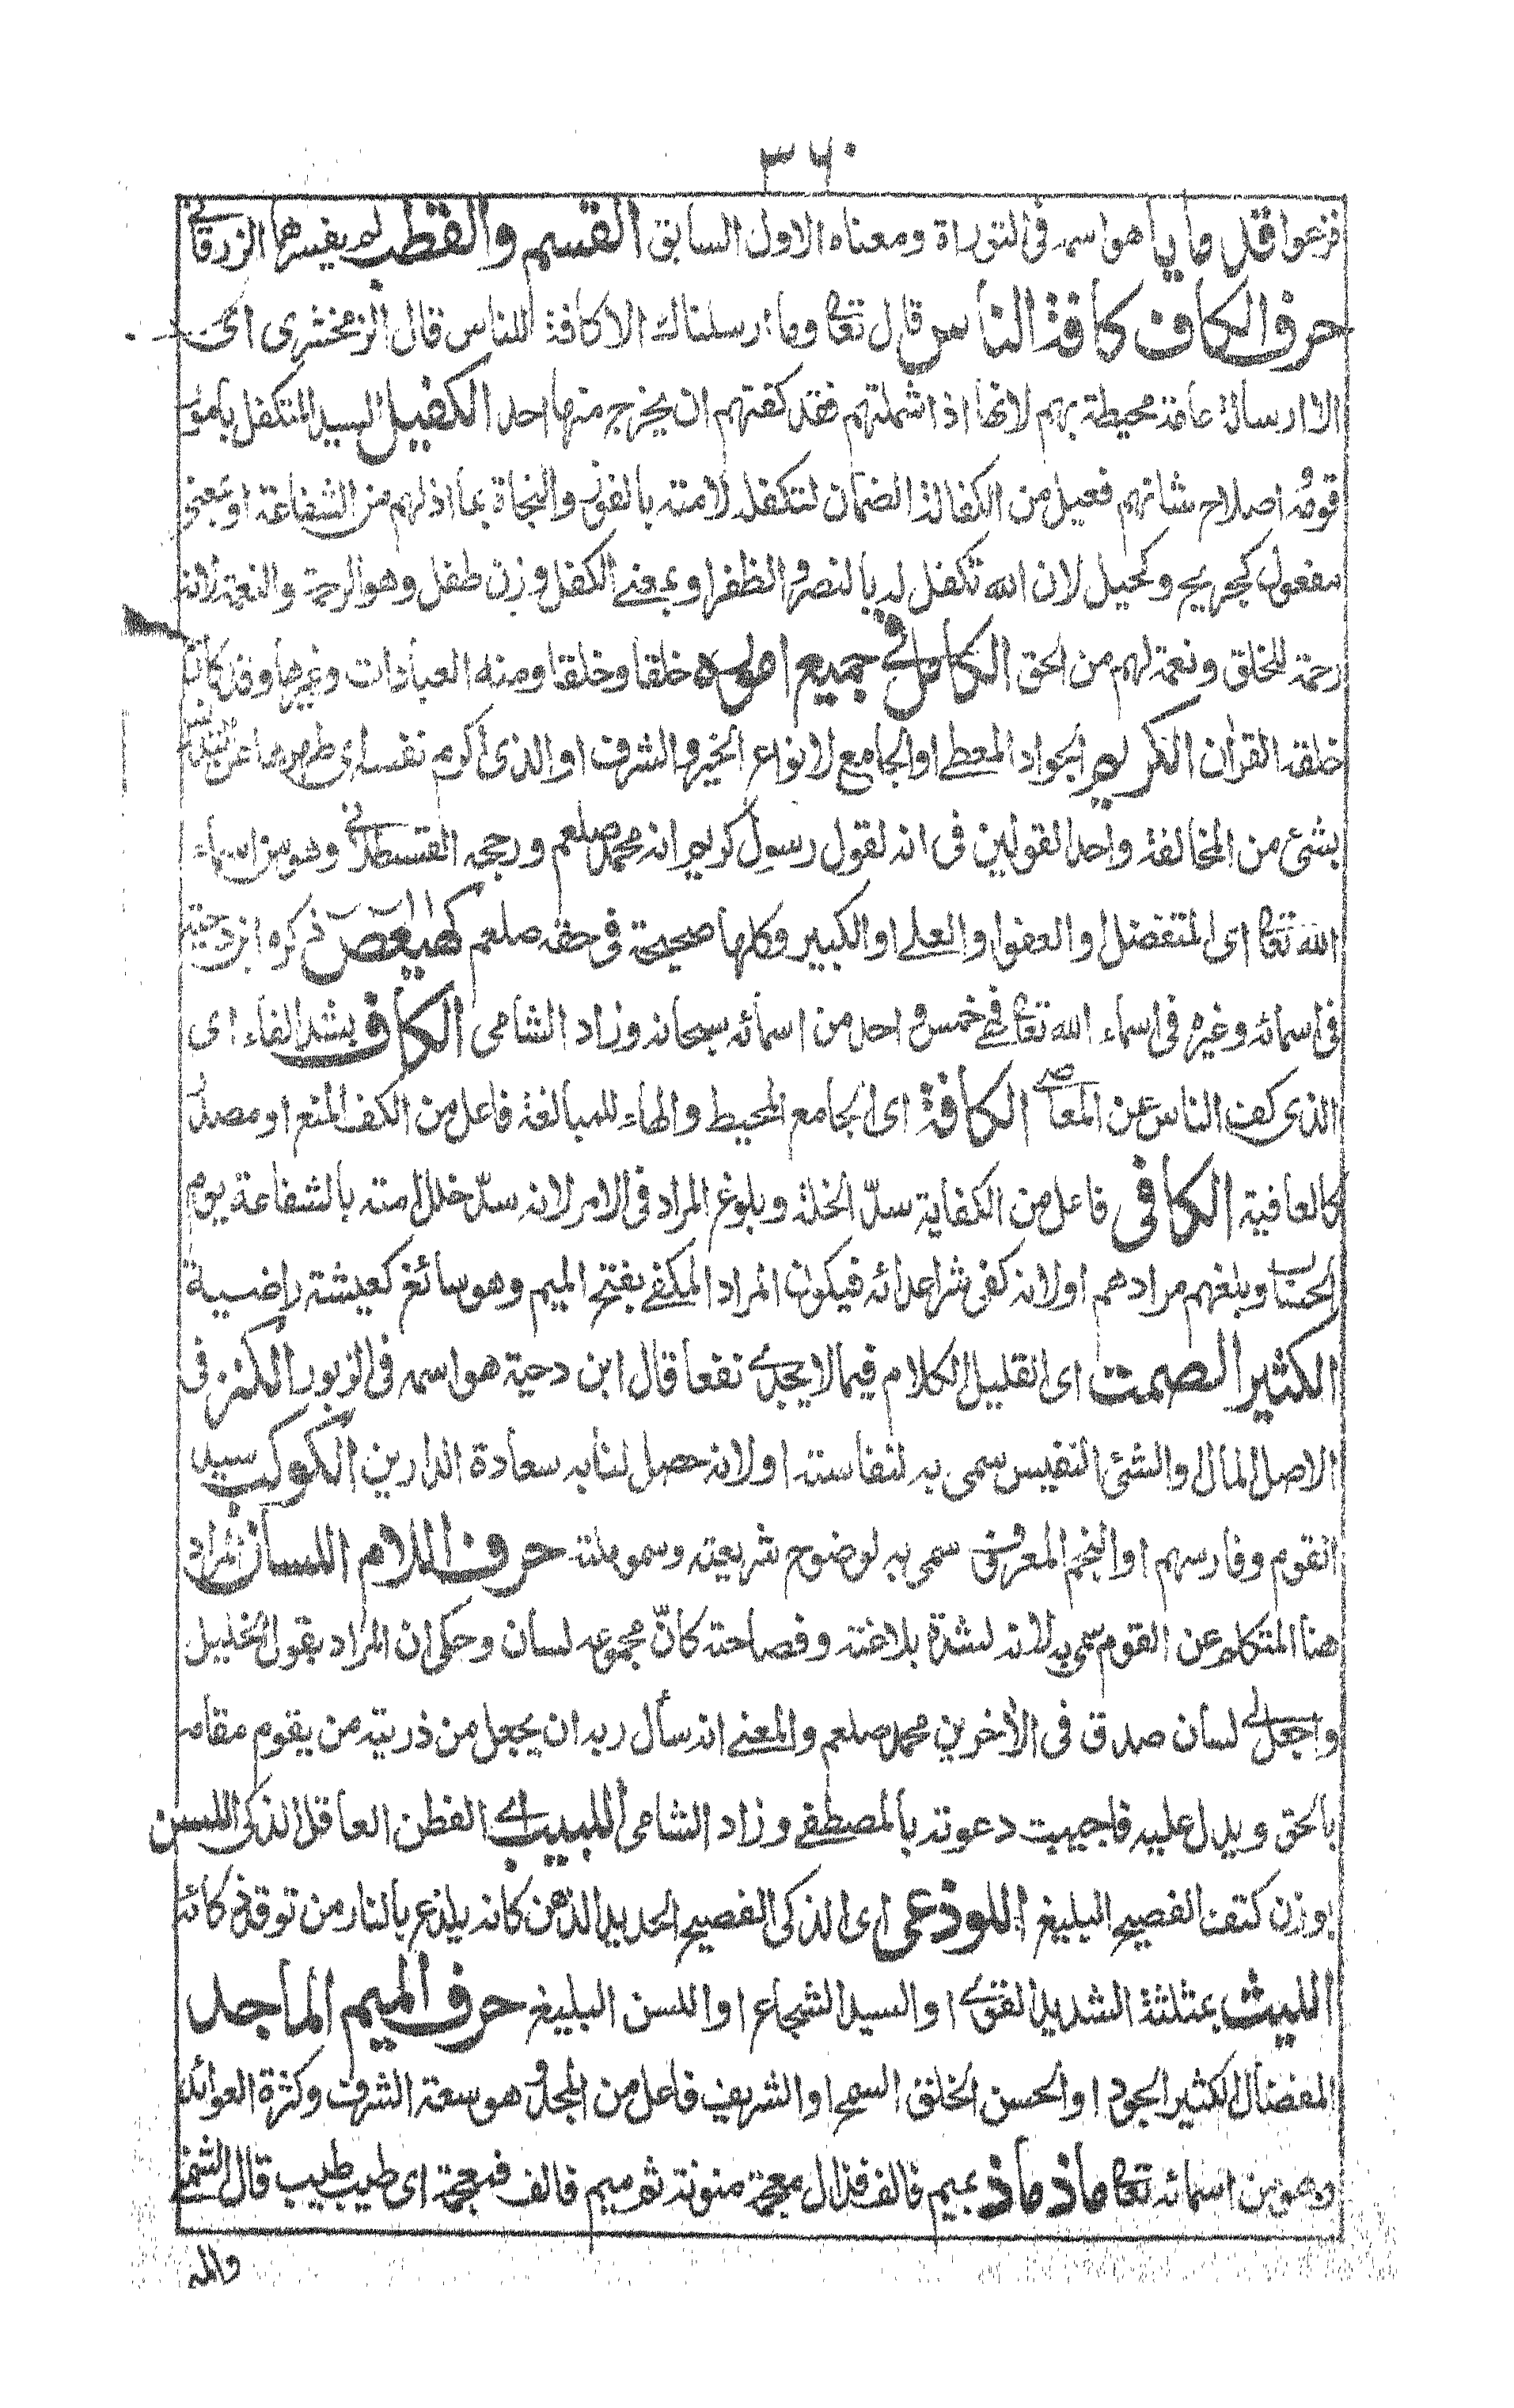 ٣٦٠
فزعوا قدمايا هو اسمه فى التوراة ومعناه الاول السابق القسم والقطب لم يفسرهما الزرقانى
حرف الكاف كافة الناس قال تعا وما ارسلناك الا كافة للناس قال الزمخشرى اى
الا ارسالة عامة محيطة بهم لانها اذا شملتهم فقد كفتهم ان يخرج منها احد الكفيل السيد المتكفل بامور
قومه اصلاح شانهم فعيل من الكفالة الضمان لتكفله لامته بالفوز والنجاة بما اذ لهم من الشفاعة او بمعنى
مفعول كجريح وكحيل لان الله تكفل له بالنصر والظفر او بمعنى الكفل وزن طفل وهو الرحمة والنعمة لانه
رحمة للخلق ونعمة لهم من الحق الكامل فى جميع اموره خلقا وخلقا ومنه العبادات وغيرها وقد كان
خلقه القرأن الكريم الجواد المعطى او الجامع لانواع الخير والشرف او الذى اكرم نفسه اى طهرها عن
بشئ من المخالفة واحد القولين فى انه لقول رسول كريم انه محمد صلعم ورجحه القسطلانى وهو من اسماء
الله تعا اى المتفضل او العفو او العلى او الكبير وكلها صحيحة فى حقه صلعم كهيعص ذكره ابن دحية
فى اسمائه وغيره فى اسماء الله تعا فى خمس واحد من اسمائه سبحانه وزاد الشامى الكاف بشد الفاء اى
الذى كف الناس عن المعاصى الكافة اى الجامع المحيط والهاء للمبالغة فاعل من الكف المنع او مصدر
كالعافية الكافى فاعل من الكفاية سدّ الخلة وبلوغ المراد فى الامر لانه سدّ خلل امته بالشفاعة يوم
الحساب وبلغهم مرادهم او لانه كفى شر اعدائه فيكون المراد المكفى بفتح الميم وهو سائغ كعيشة راضية
الكثير الصمت اى القليل الكلام فيما لا يجدى نفعا قال ابن دحية هو اسمه فى الزبور الكنز فى
الاصل المال والشئ النفيس سمى به لنفاسته او لانه حصل لنا به سعادة الدارين الكوكب سيد
القوم وفارسهم او النجم المعروف سمى به لوضوح شريعته وسمو ملته حرف اللام اللسان المراد
هنا المتكلم عن القوم سمى به لانه لشدة بلاغته وفصاحته كانّ مجموعه لسان وحكى ان المراد بقول الخليل
واجعل لى لسان صدق فى الأخرين محمد صلعم والمعنى انه سأل ربه ان يجعل من ذريته من يقوم مقامه
بالحق ويدل عليه فاجيبت دعوته بالمصطفى وزاد الشامى اللبيب اى الفطن العاقل الذكى اللسن
بوزن كتف الفصيح البليغ اللوذعى اى الذكى الفصيح الحديد الذهن كانه يلذع بالنار من توقد ذكائه
الليث بمثلثة الشديد القوى او السيد الشجاع او اللسن البليغ حرف الميم الماجد
المفضال الكثير الجود او الحسن الخلق السمح او الشريف فاعل من المجد وهو سعة الشرف وكثرة العوائد
وهو من اسمائه تعا ماذ ماذ بميم فالف فذال معجمة منونة ثم ميم فالف فمعجمة اى طيب طيب قال الشمنى
والمه